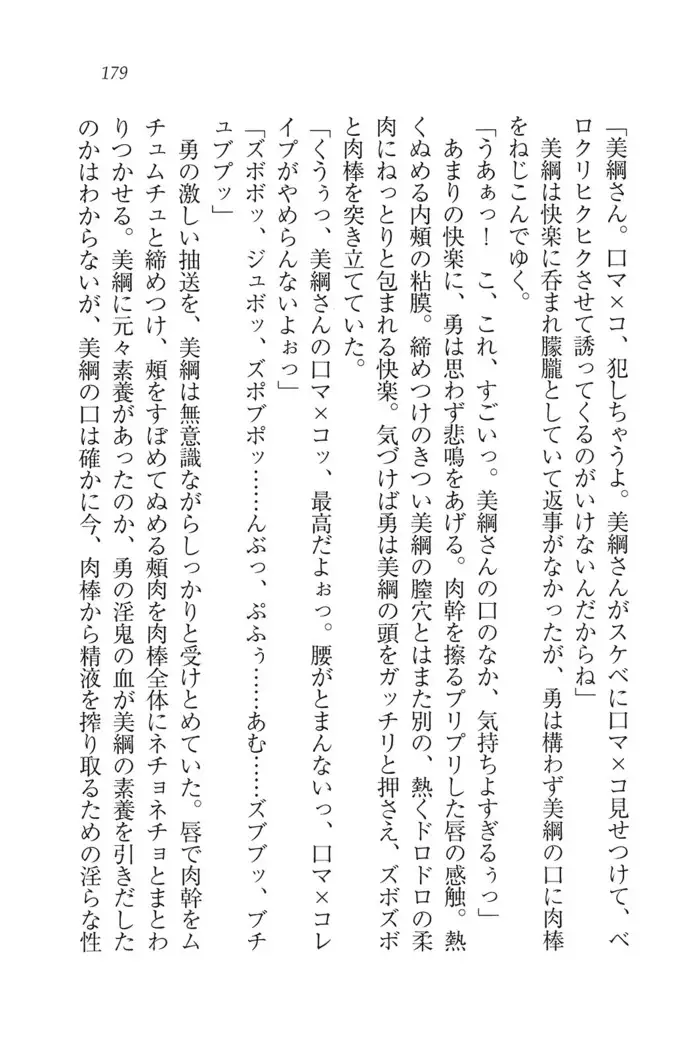 179
「美綱さん。口マ×コ、犯しちゃうよ。美綱さんがスケベに口マ×コ見せつけて、ベ
ロクリヒクヒクさせて誘ってくるのがいけないんだからね」
美綱は快楽に呑まれ朦朧としていて返事がなかったが、勇は構わず美綱の口に肉棒
をねじこんでゆく。
「うあぁっ！　こ、これ、すごいっ。美綱さんの口のなか、気持ちよすぎるぅっ」
あまりの快楽に、勇は思わず悲鳴をあげる。肉幹を擦るプリプリした唇の感触。熱
くぬめる内頬の粘膜。締めつけのきつい美綱の膣穴とはまた別の、熱くドロドロの柔
肉にねっとりと包まれる快楽。気づけば勇は美綱の頭をガッチリと押さえ、ズボズボ
と肉棒を突き立てていた。
「くうぅっ、美綱さんの口マ×コッ、最高だよぉっ。腰がとまんないっ、口マ×コレ
イプがやめらんないよぉっ」
「ズボボッ、ジュボッ、ズポブポッ……んぶっ、ぷふぅ……あむ……ズブブッ、ブチ
ュブプッ」
勇の激しい抽送を、美綱は無意識ながらしっかりと受けとめていた。唇で肉幹をム
チュムチュと締めつけ、頬をすぼめてぬめる頬肉を肉棒全体にネチョネチョとまとわ
りつかせる。美綱に元々素養があったのか、勇の淫鬼の血が美綱の素養を引きだした
のかはわからないが、美綱の口は確かに今、肉棒から精液を搾り取るための淫らな性